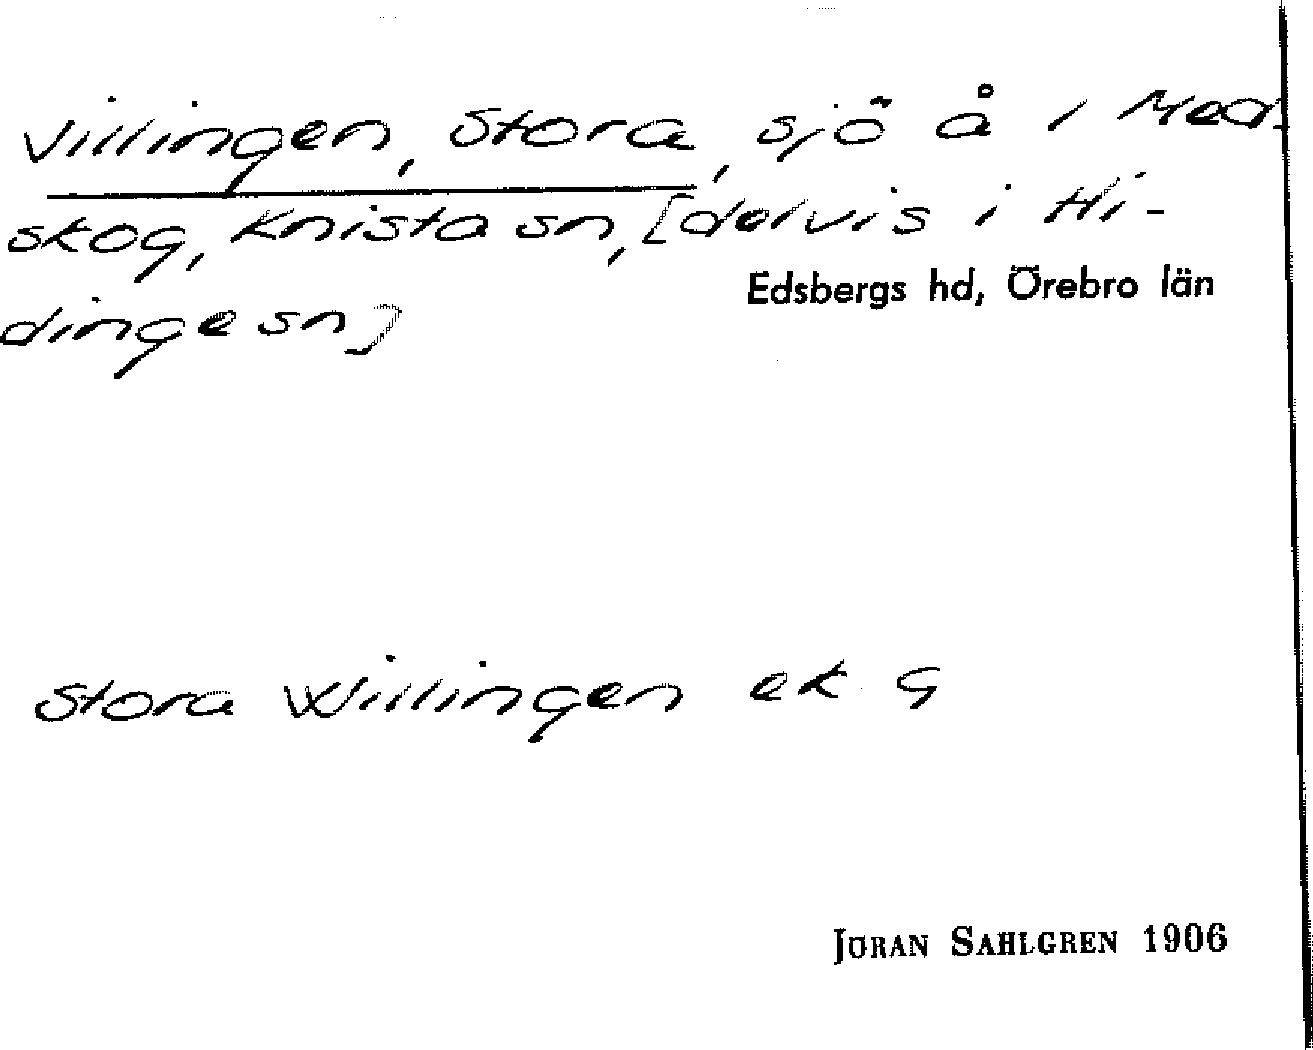 Villingen, Stora, sjö å 1 Med-
skog, Knista sn, [delvis i Hi-
dinge sn]
Edsbergs hd, Örebro län
Stora Willingen ek G
JÖRAN SAHLGREN 1906